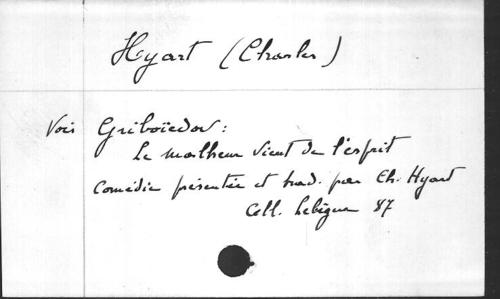 Hyart (Charles)
Vois Griboïedov :
Le malheur vient de l'esprit
Comédie présentée et trad. par Ch. Hyart
Coll. Lebègue 87